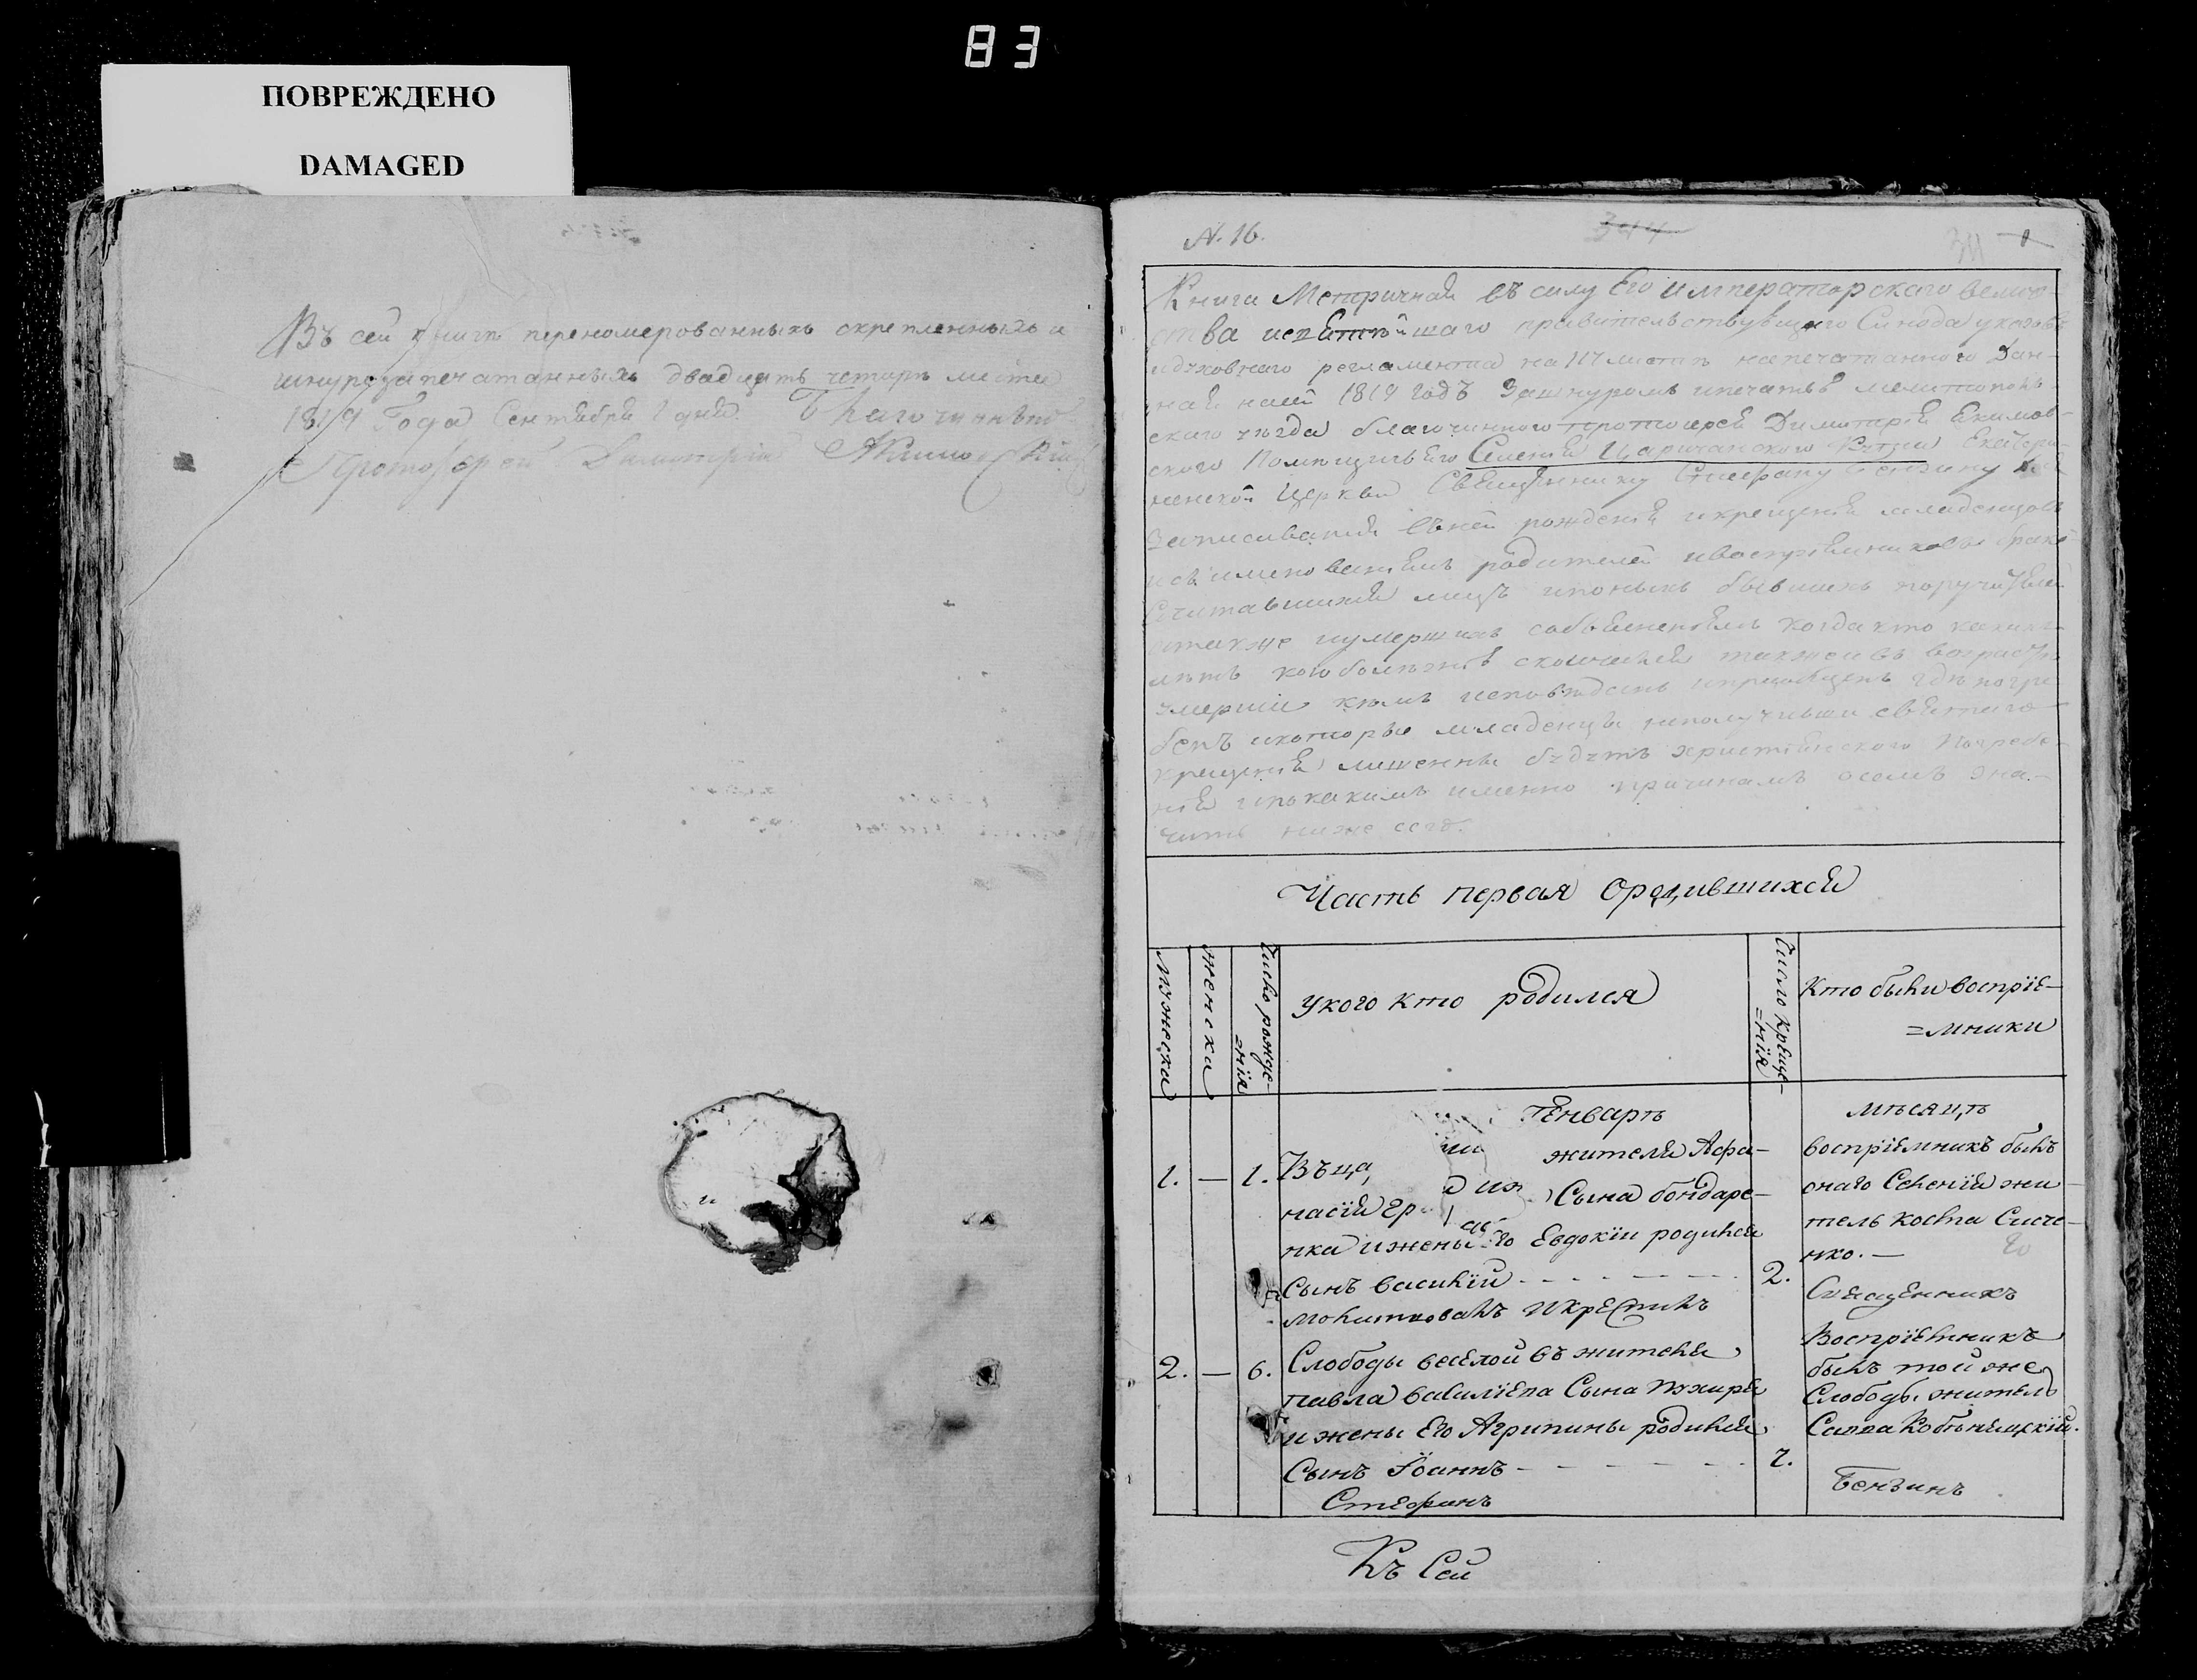 83
ПОВРЕЖДЕНО
DAMAGED
Въ сей книгѣ переномерованныхъ скрепленныхъ и
шнурозапечатанныхъ двадцать четыре листа
1819 Года Сентября 1 дня. Благочинный
Протоіерей Димитрій
N. 16.
344
Книга Метричная въ силу Его императорскаго велич
ства и шаго правительствующаго Синода указовъ
и духовнаго регламента на листѣ напечатаннаго Дан-
ная на 1819 годъ Зашнуромъ ипечатью мелитополь
скаго уѣзда благочиннаго протоиерея Димитрія Екимов-
скаго Селенія Царичанского Кутки Екатери
менской Церкви Священнику Стефану Бензину
Записыванія въней рожденія икрещенія младенцовъ
исъ именованіемъ родителей ивоспріемниковъ брако
Считавшихся лицъ ипоныхъ бывшихъ поручителей
атакже иумершихъ собъясненіемъ когда кто какихъ
лѣтъ коюболѣзнію скончался такжевъ возрастѣ
умершіи кѣмъ исповѣданъ ипріобщенъ гдѣ погре
бенъ икоторые младенцы неполучивши святаго
крещенія лишенны будутъ христіанскаго Погребе
нія ипокакимъ именно причинамъ осемъ зна-
читъ ниже сего.
Часть первая Ородившихся
Мужеска
женска
Число рожде-
=нія
Укого кто родился
Число Креще-
=нія
Кто были воспріе-
=мники
Генваръ
мѣсяцъ
1. — 1. Въца жителя Афа-
насія Гр Сына бондаре-
нка ижены его Евдокіи родился
Сынъ василій - - - - - -
молитвовалъ Икрестилъ
2.
воспріемникъ былъ
онаго Селенія жи-
тель Косма Сисче-
нко. —
Священникъ
2. — 6. Слободы веселой въ жителя
павла василіева Сына
ижены Его Агрипины родился
Сынъ Іоаннъ - - - - - -
Стефанъ
7.
Воспріемникъ
былъ той же
Слободы житель
Савва
Бензинъ
Къ Сей